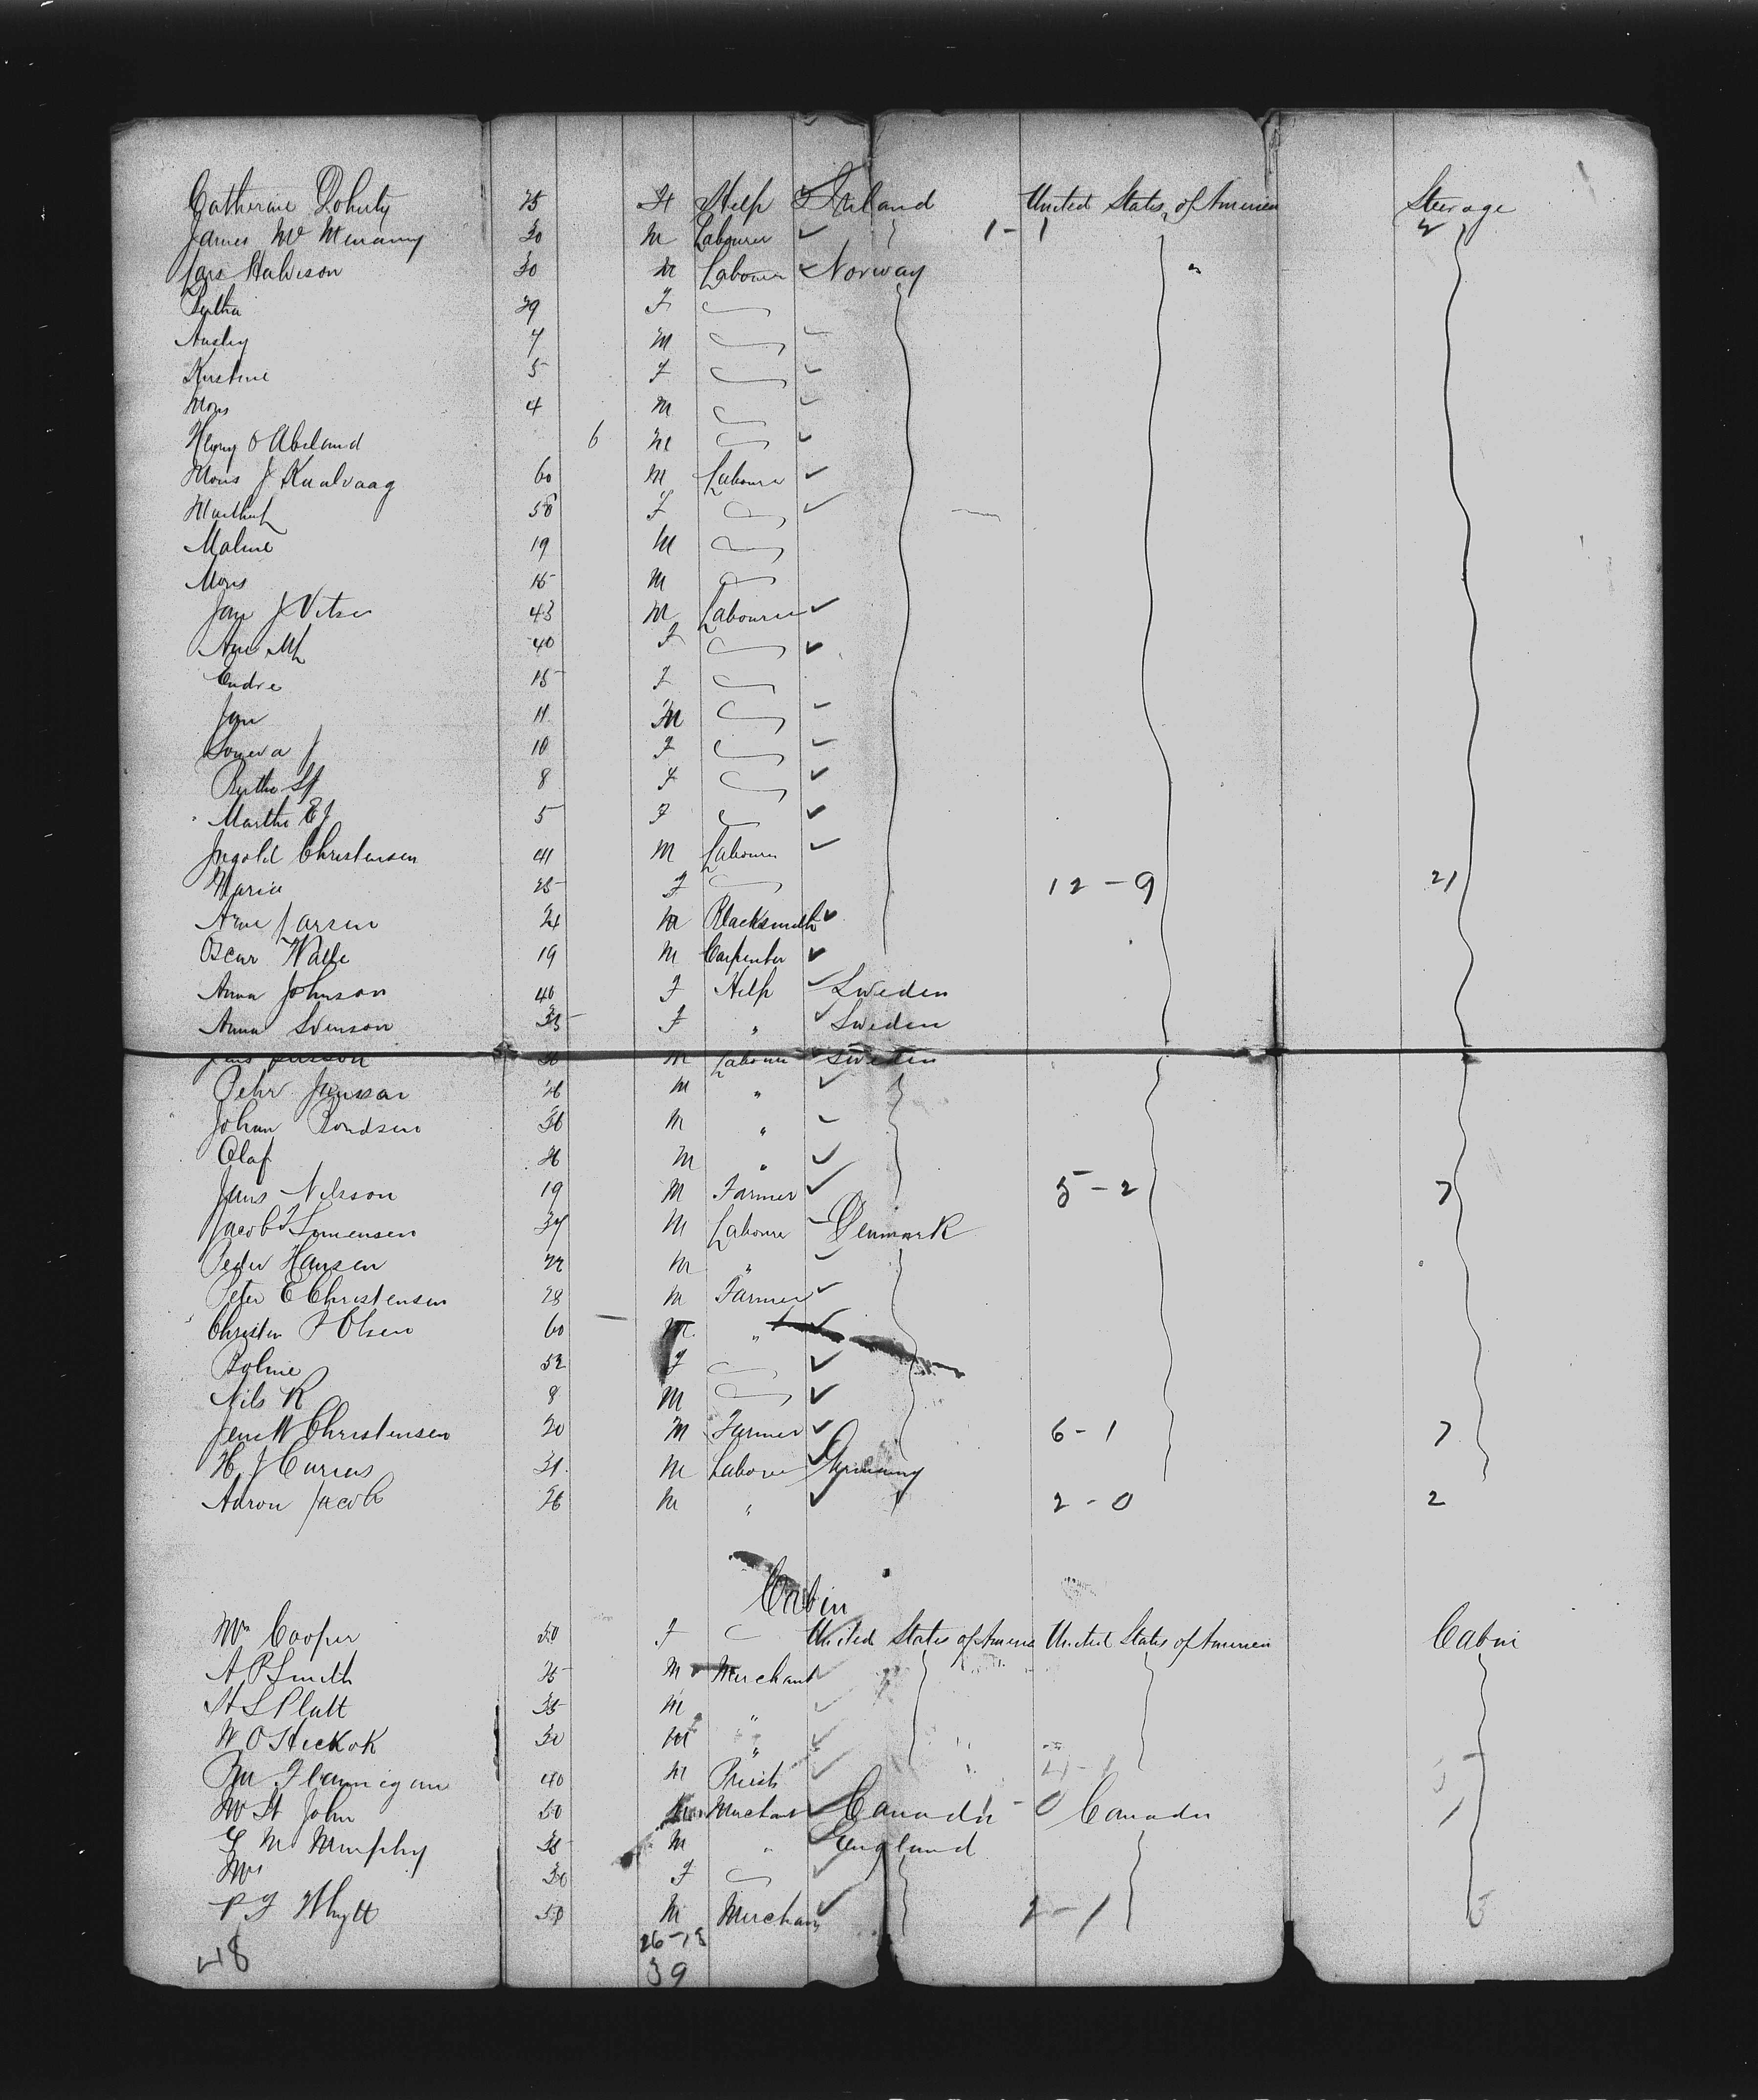 Catherine Doherty 25 F Help Ireland United States of America Steerage
James Mc 30 M Labourer 1-1 2
Lars Halvison 30 M Labourer Norway
Bertha 29 F
7 M
Kirstine 5 F
Mons 4 M
6 M
Mons J Kualvaag 60 M Labourer
58 F
Maline 19 M
Mons 15 M
Jan J 43 M Labourer
Ane M 40 F
Endre 15 F
Jan 11 M
10 F
Bertha 8 F
Martha E J 5 F
Ingold Christensen 41 M Labourer
Maria 25 F 12-9 21
Arne Larsen 21 M Blacksmith
Oscar 19 M Carpenter
Anna Johnson 40 F Help Sweden
Anna Svenson 35 F " Sweden
M Labourer Sweden
Pehr Jensson 26 M "
Johan 36 M "
Olaf 26 M "
Jens Nilsson 19 M Farmer 5-2 7
Jacob 34 M Labourer Denmark
Peder Hansen 22 M "
Peter C Christensen 28 M Farmer
Christen P Olsen 60 M "
52 F
Nils K 9 M
Jens N Christensen 20 M Farmer 6-1 7
H. J Carias 31 M Labourer Germany
Aaron Jacob 26 M " 2-0 2
Cabin
Mrs Cooper 50 F United States of America United States of America Cabin
A P Smith 25 M Merchant
H S Platt 35 M "
W O Hickok 30 M "
Flannigan 40 M Priest 4-1 5
Mr St John 50 M Merchant Canada 1-0 Canada 1
G M Murphy 35 M " England
Mrs 30 F
P J Whytt 50 M Merchant 2-1 3
48 26-13
39